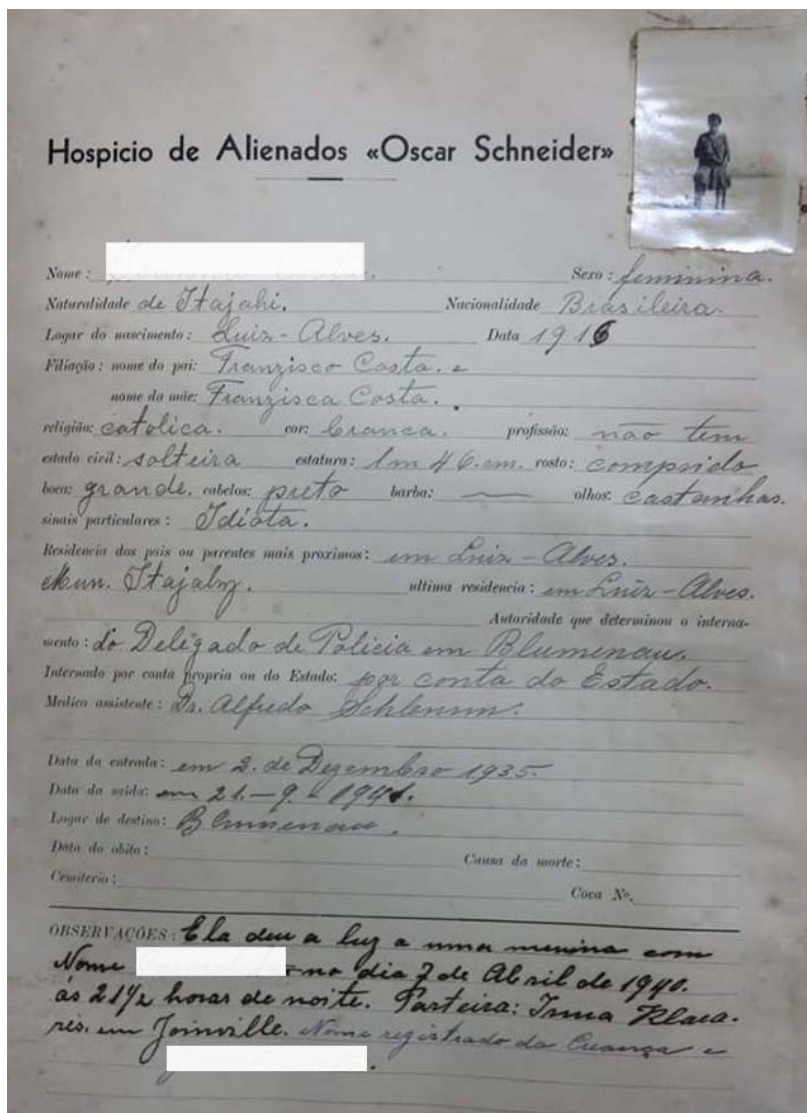 Hospicio de Alienados «Oscar Schneider»
Nome: Sexo: feminina.
Naturalidade de Itajahi. Nacionalidade Brasileira.
Logar do nascimento: Luiz-Alves. Data 1916
Filiação: nome do pai: Franzisco Costa. e
nome da mãe: Franzisca Costa.
religião: catolica. cor: branca. profissão: não tem
estado civil: solteira estatura: 1m 46.cm. rosto: comprido
boca: grande. cabelos: preto barba: — olhos: castanhas.
sinais particulares: Idiota.
Residencia dos pais ou parentes mais proximos: em Luiz-Alves.
Mun. Itajahy. ultima residencia: em Luiz-Alves.
Autoridade que determinou o interna-
mento: do Delegado de Policia em Blumenau.
Internado por conta propria ou do Estado: por conta do Estado.
Medico assistente: Dr. Alfredo
Data da entrada: em 2. de Dezembro 1935.
Data da saida: em 21.-9.-1941.
Logar de destino: Blumenau.
Data do obito: Causa da morte:
Cemiterio: Cova No.
OBSERVAÇÕES: Ela deu a luz a uma menina com
Nome no dia 7 de Abril de 1940.
ás 21½ horas de noite. Parteira: Irma Klara.
res. em Joinville. Nome registrado da Creança e